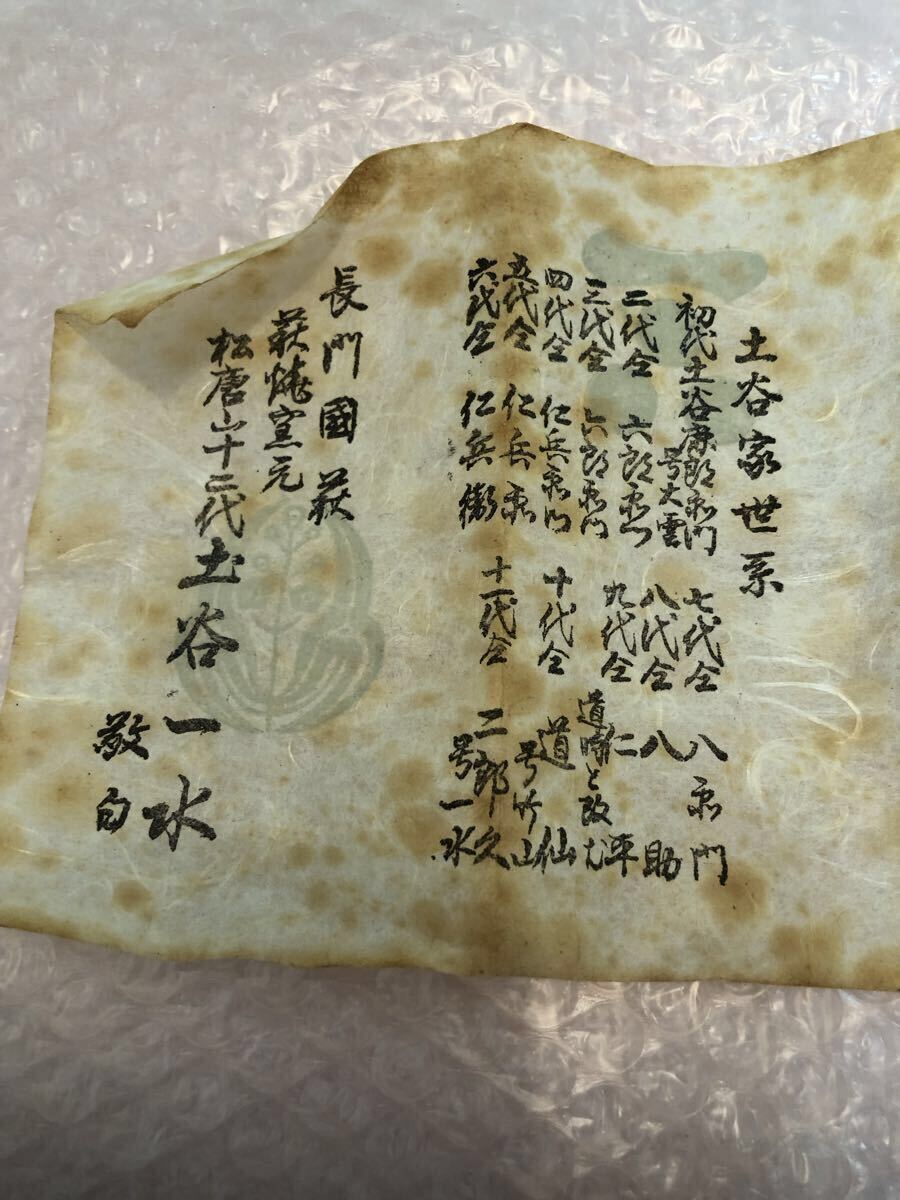 土谷家世系
初代土谷六郎右衛門
号大雲
二代仝 六郎右衛門
三代仝 六郎右衛門
四代仝 仁兵衛門
五代仝 仁兵衛
六代仝 仁兵衛
七代仝 八衛門
八代仝 八助
九代仝 仁平
道時と改む
十代仝 道仙
号竹山
十一代仝 二郎久
号一水
長門國萩
萩焼窯元
松唐山十二代土谷一水
敬白